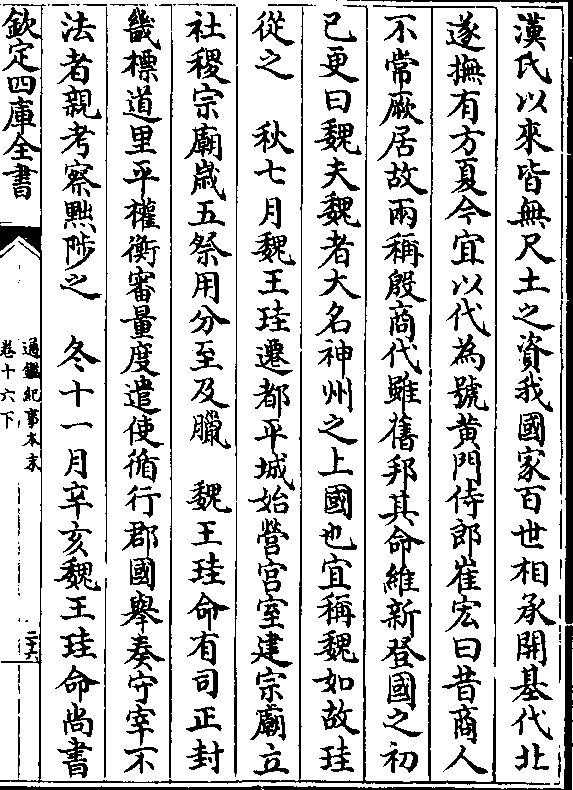 漢氏以來皆無尺土之資我國家百世相承開基代北
遂撫有方夏今宜以代為號黄門侍郎崔宏曰昔商人
不常厥居故兩稱殷商代雖舊邦其命維新登國之初
已更曰魏夫魏者大名神州之上國也宜稱魏如故珪
從之　秋七月魏王珪遷都平城始營宫室建宗廟立
社稷宗廟歲五祭用分至及臘　魏王珪命有司正封
畿標道里平權衡審量度遣使循行郡國舉奏守宰不
法者親考察黜陟之　冬十一月辛亥魏王珪命尚書
欽定四庫全書
通鑑紀事本末
卷十六下
二十六